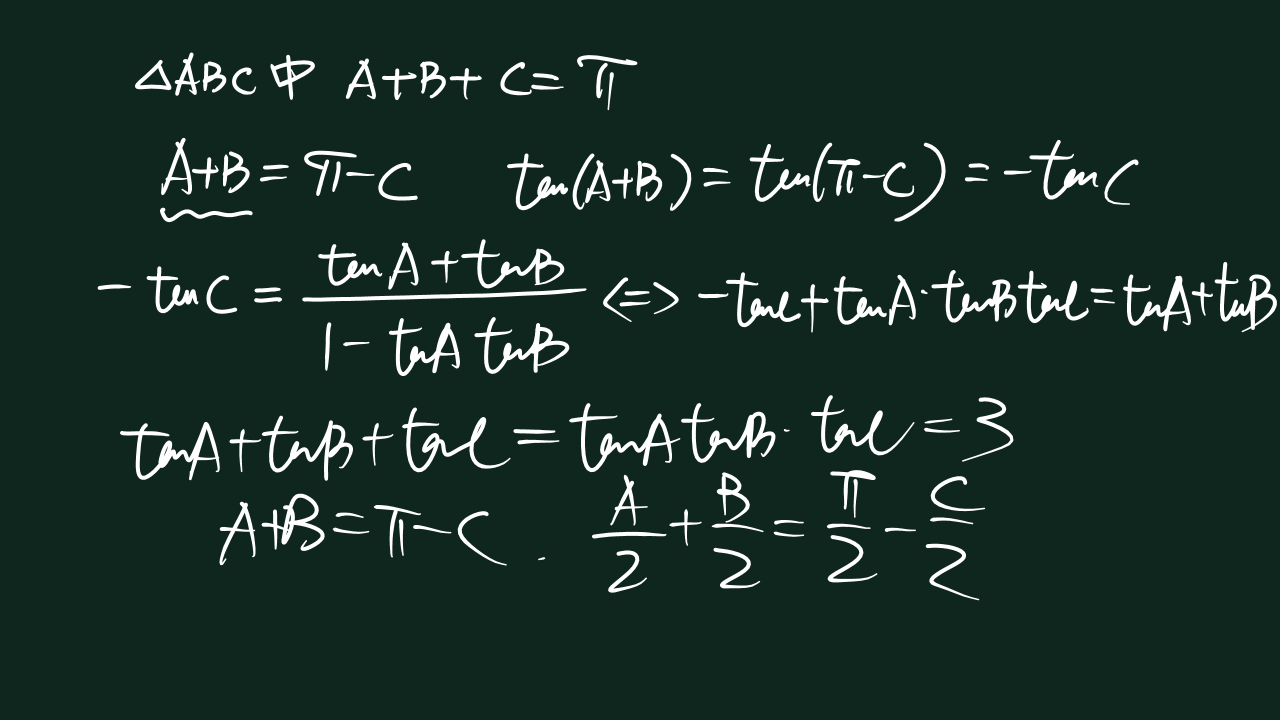 △ABC中 A+B+C=π
A+B=π-C tan(A+B)=tan(π-C)=-tanC
-tanC=\frac{tanA+tanB}{1-tanAtanB} <=> -tanC+tanA·tanBtanC=tanA+tanB
tanA+tanB+tanC=tanAtanB·tanC=3
A+B=π-C. \frac{A}{2}+\frac{B}{2}=\frac{π}{2}-\frac{C}{2}